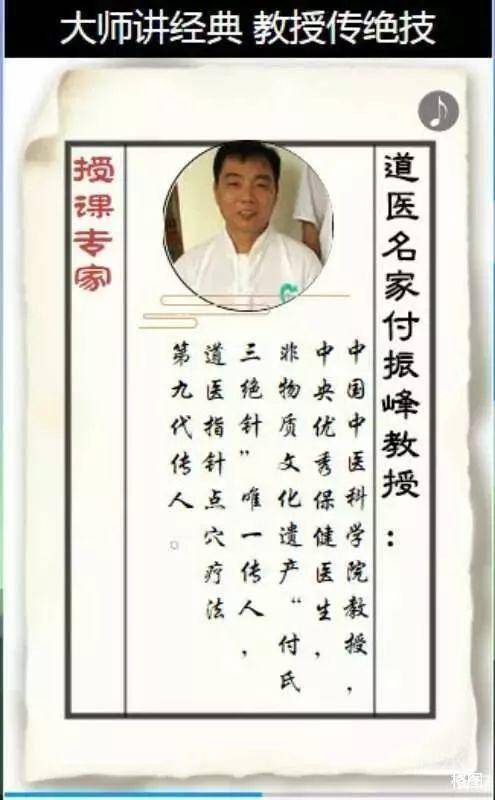 大师讲经典 教授传绝技
道医名家付振峰教授：
中国中医科学院教授，
中央优秀保健医生，
非物质文化遗产“付氏
三绝针”唯一传人，
道医指针点穴疗法
第九代传人。
授课专家